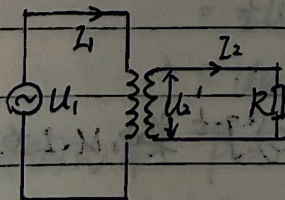 I₁
I₂
U₁
U₂'
R